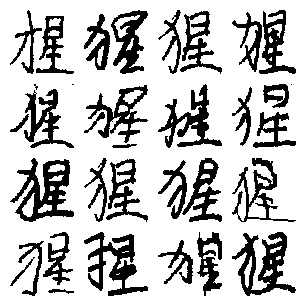 猩猩猩猩
猩猩猩猩
猩猩猩猩
猩猩猩猩